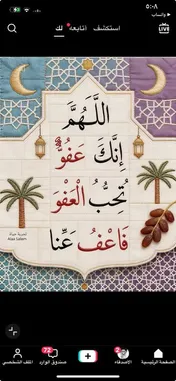 ٥:٠٨
واتساب
استكشف أتابعه لك
LIVE
اللَّهُمَّ
إِنَّكَ عَفُوٌّ
تُحِبُّ الْعَفْوَ
فَاعْفُ عَنَّا
Alaa Salem
الصفحة الرئيسية
الأصدقاء
صندوق الوارد
72
الملف الشخصي